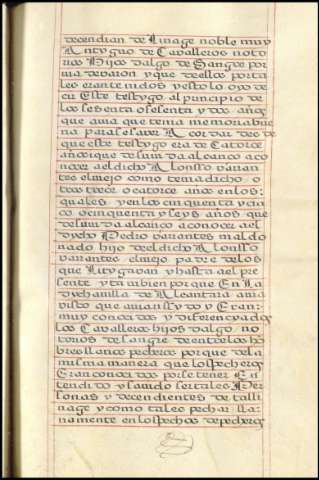 decendian de Linage noble muy
Antyguo de Cavalleros noto
rios Hijos dalgo de Sangre por
via de varon y que de ellos por ta
les eran tenidos y esto lo oyo de
cir Este testygo al principio de
los sesenta o setenta y dos años
que avia que tenia memoria bue
na para se saver Acordar desde
que este testygo era de Catorce
años que de su vida alcanco a co
nocer a el dicho Alonsso varran
tes el viejo como tenia dicho o
tros trece o catorce años en los
quales y en los cinquenta y cin
co o cinquenta y seys años que
de su vida alcanco a conocer a el
dycho Pedro varrantes maldo
nado hijo de el dicho Alonsso
varrantes el viejo padre de los
que Litygavan y hasta a el pre
sente y tambien por que En La
dycha villa de Alcantara avia
visto que avian sydo y Eran
muy conocidos y diferencyados
los Cavalleros hijos dalgo no
torios de sangre de entre los ho
bres llanos pecheros por que de la
misma manera que los pecheros
Eran conocidos por se tener En
tendido y savido ser tales Per
sonas y decendientes de tal li
nage y como tales pechar lla
namente en los pechos de pecheros